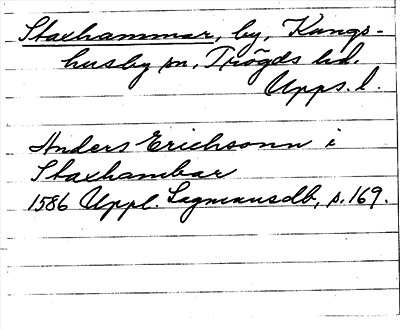 Staxhammar, by, Kungs-
husby sn, Trögds hd.
Upps. l.
Anders Erichsonn i
Staxhambar
1586 Uppl. Lagmansdb, s. 169.